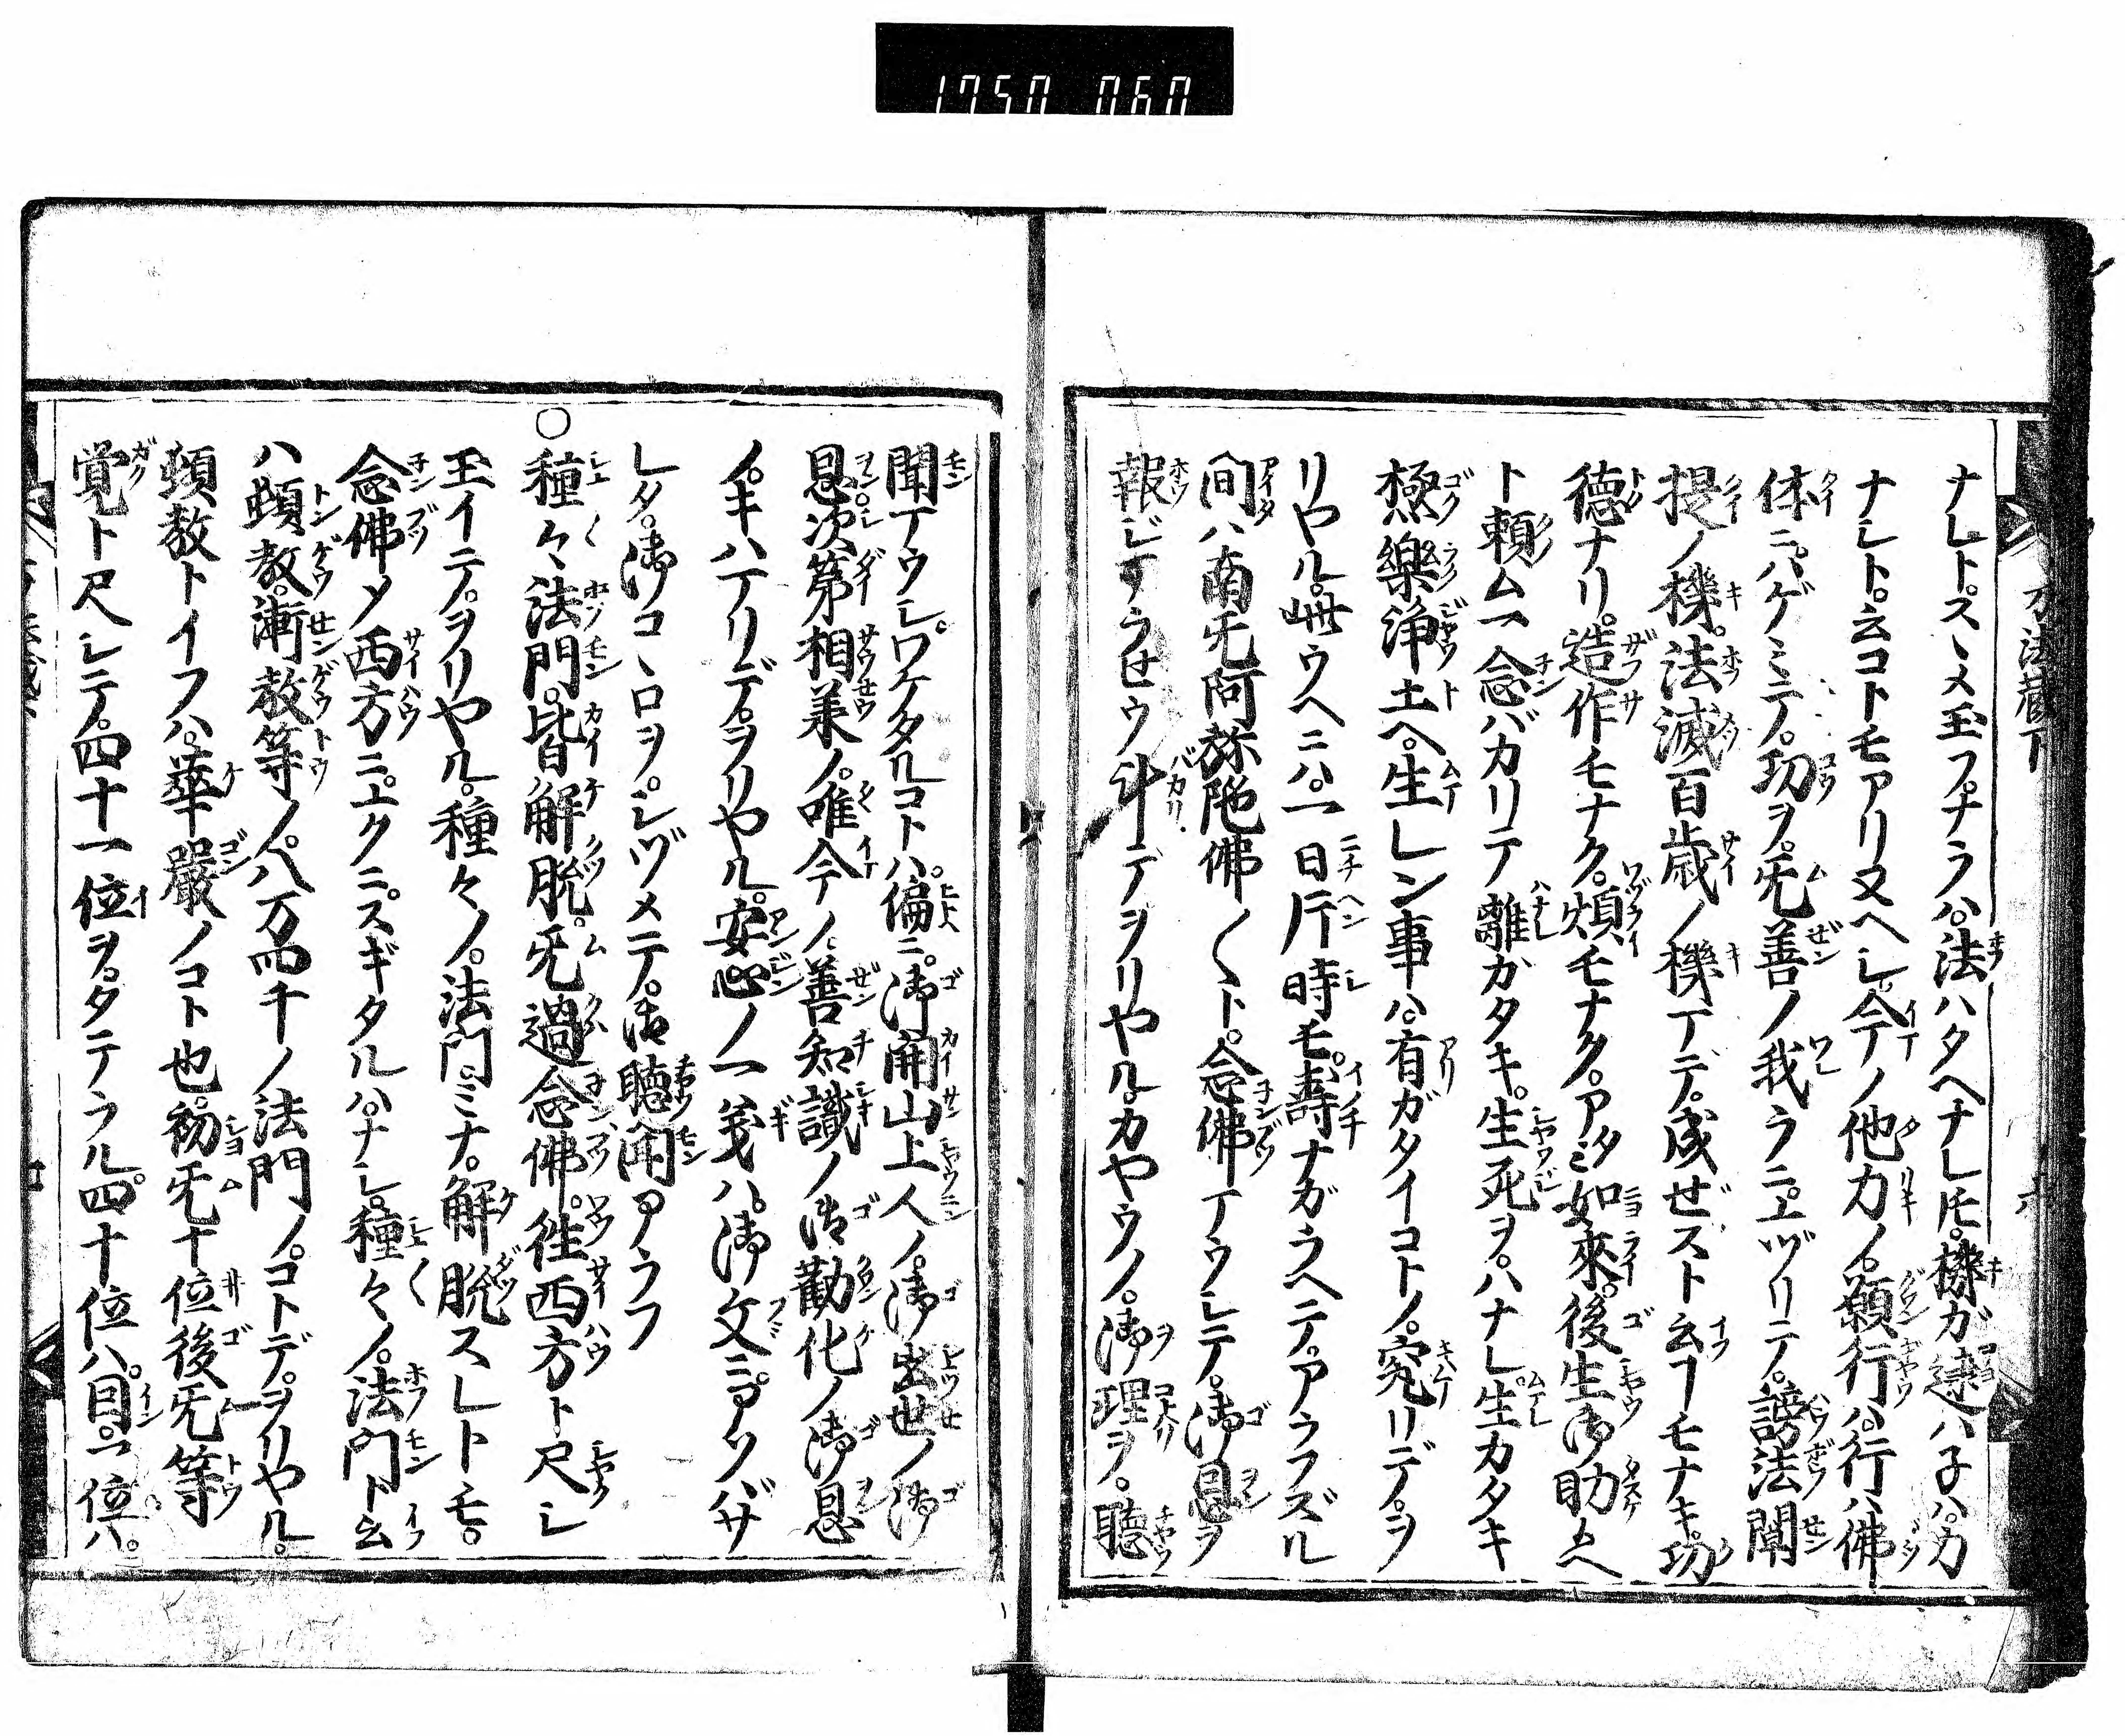 1750 060
万法蔵下
ナレト。スヽメ玉フ。ナラハ。法ハタヘナレ𪜈。機ガ遠ハ子ハ。カ
ナレト。云コトモアリ又ヘレ。今ノ他力ノ。願行ハ。行ハ佛
体ニ。ハゲミテ。功ヲ。旡善ノ我ラニ。ユヅリテ。謗法闡
提ノ機。法滅百歳ノ機マデ。成ぜスト云フモナキ。功
徳ナリ。造作モナク。煩モナク。アタミ如來。後生御助ケヘ
ト頼ム一念バカリテ離ガタキ。生死ヲ。ハナレ。生カタキ
極樂淨土ヘ。生レン事ハ。有ガタイコトノ。究リデ。ヲ
リヤル。世ウヘニハ。一日片時モ。壽ナガラヘテ。アラフズル
間ハ南旡阿弥陀佛〱ト。念佛マウシテ。御恩ヲ
報ジマラせウ斗デヲリヤル。カヤウノ。御理ヲ。聽
聞マウシ。ワケタルコトハ。偏ニ。御開山上人ノ。御出世ノ御
恩次第相兼ノ。唯今ノ。善知識ノ御勸化ノ御恩
ノ。キハマリデ。ヲリヤル。安心ノ一義ハ。御文ニ。ヨクツハザ
レタ。御コヽロヲ。シヅメテ。御聽聞アラフ
○種々法門。皆解脱。旡過念佛。徃西方ト尺シ
玉イテ。ヲリヤル。種々ノ。法門。ミナ。解脱スレトモ。
念佛メ西方ニ。ユクニ。スギタルハ。ナシ。種々ノ。法門ト云
ハ頓教。漸教等ノ。八万四千ノ法門ノ。コトデ。ヲリヤル。
頓教トイフハ。華嚴ノコト也。初旡十位後旡等
覚ト尺シテ。四十一位ヲ。タテラル。四十位ハ。因。一位ハ。